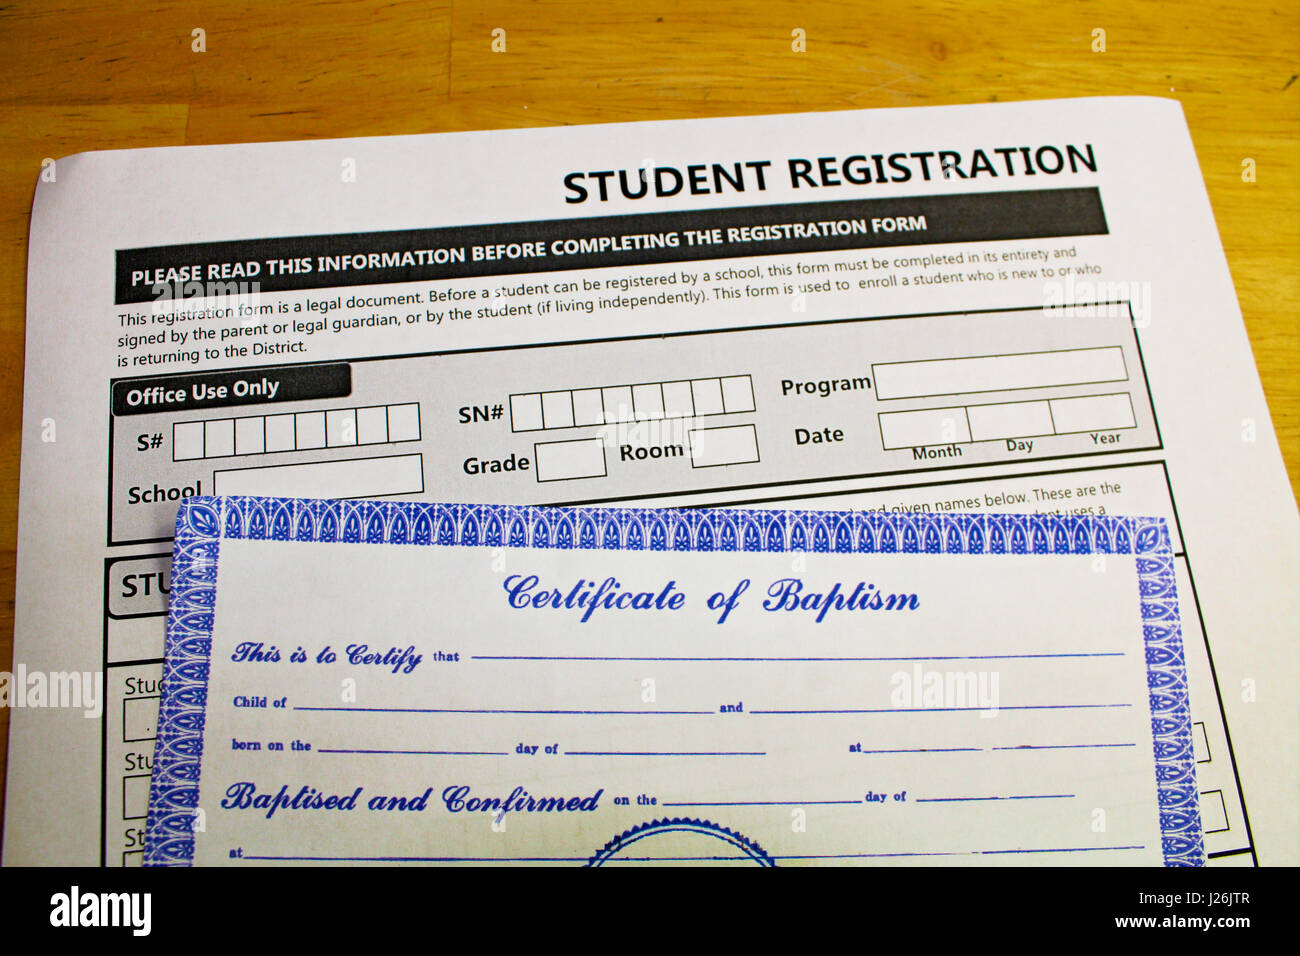 STUDENT REGISTRATION
PLEASE READ THIS INFORMATION BEFORE COMPLETING THE REGISTRATION FORM
This registration form is a legal document. Before a student can be registered by a school, this form must be completed in its entirety and
signed by the parent or legal guardian, or by the student (if living independently). This form is used to enroll a student who is new to or who
is returning to the District.
Office Use Only
S# SN# Program
School Grade Room Date
Month Day Year
and given names below. These are the
uses a
Certificate of Baptism
This is to Certify that
Child of and
born on the day of at
Baptised and Confirmed on the day of
at
alamy
Image ID: J26JTR
www.alamy.com